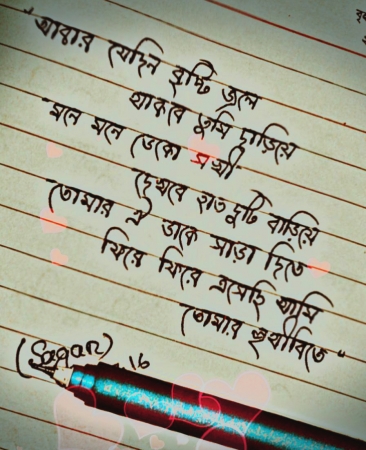 "আবার যেদিন বৃষ্টি জলে
থাকবে তুমি দাড়িয়ে
মনে মনে ডেকো সখী
দেখবে হাত দুটি বাড়িয়ে
তোমার ঐ ডাকে সাড়া দিতে
ফিরে ফিরে এসেছি আমি
তোমার পৃথীবিতে"
(Sagar)
16